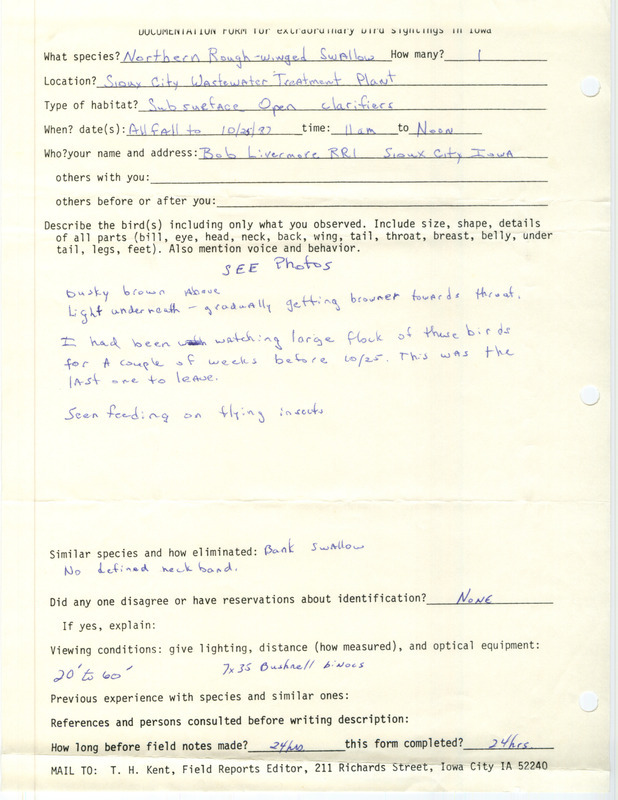 DOCUMENTATION FORM for extraordinary bird sightings in Iowa
What species? Northern Rough-winged Swallow How many? 1
Location? Sioux City Wastewater Treatment Plant
Type of habitat? Subsurface Open clarifiers
When? date(s): All fall to 10/25/87 time: 11am to Noon
Who?your name and address: Bob Livermore RR1 Sioux City Iowa
others with you:
others before or after you:
Describe the bird(s) including only what you observed. Include size, shape, details
of all parts (bill, eye, head, neck, back, wing, tail, throat, breast, belly, under
tail, legs, feet). Also mention voice and behavior.
SEE Photos
Dusky brown Above
Light underneath - gradually getting browner towards throat.
I had been watching large flock of these birds
for a couple of weeks before 10/25. This was the
last one to leave.
Seen feeding on flying insects
Similar species and how eliminated: Bank Swallow
No defined neck band.
Did any one disagree or have reservations about identification? None
If yes, explain:
Viewing conditions: give lighting, distance (how measured), and optical equipment:
20' to 60' 7x35 Bushnell binocs
Previous experience with species and similar ones:
References and persons consulted before writing description:
How long before field notes made? 24hrs this form completed? 24hrs.
MAIL TO: T. H. Kent, Field Reports Editor, 211 Richards Street, Iowa City IA 52240